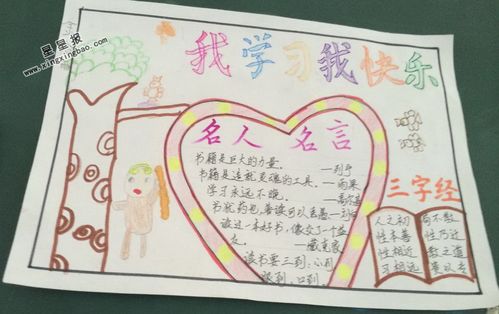 星星报
www.xingxingbao.com
我学习我快乐
名人名言
书籍是巨大的力量。 ——列宁
书籍是造就灵魂的工具。——雨果
学习永远不晚。 ——高尔基
书犹药也,善读可以医愚——刘向
读过一本好书,像交了一个益
友。 ——臧克家
读书要三到:心到
眼到、口到。
三字经
人之初
性本善
性相近
习相远
苟不教
性乃迁
教之道
贵以专